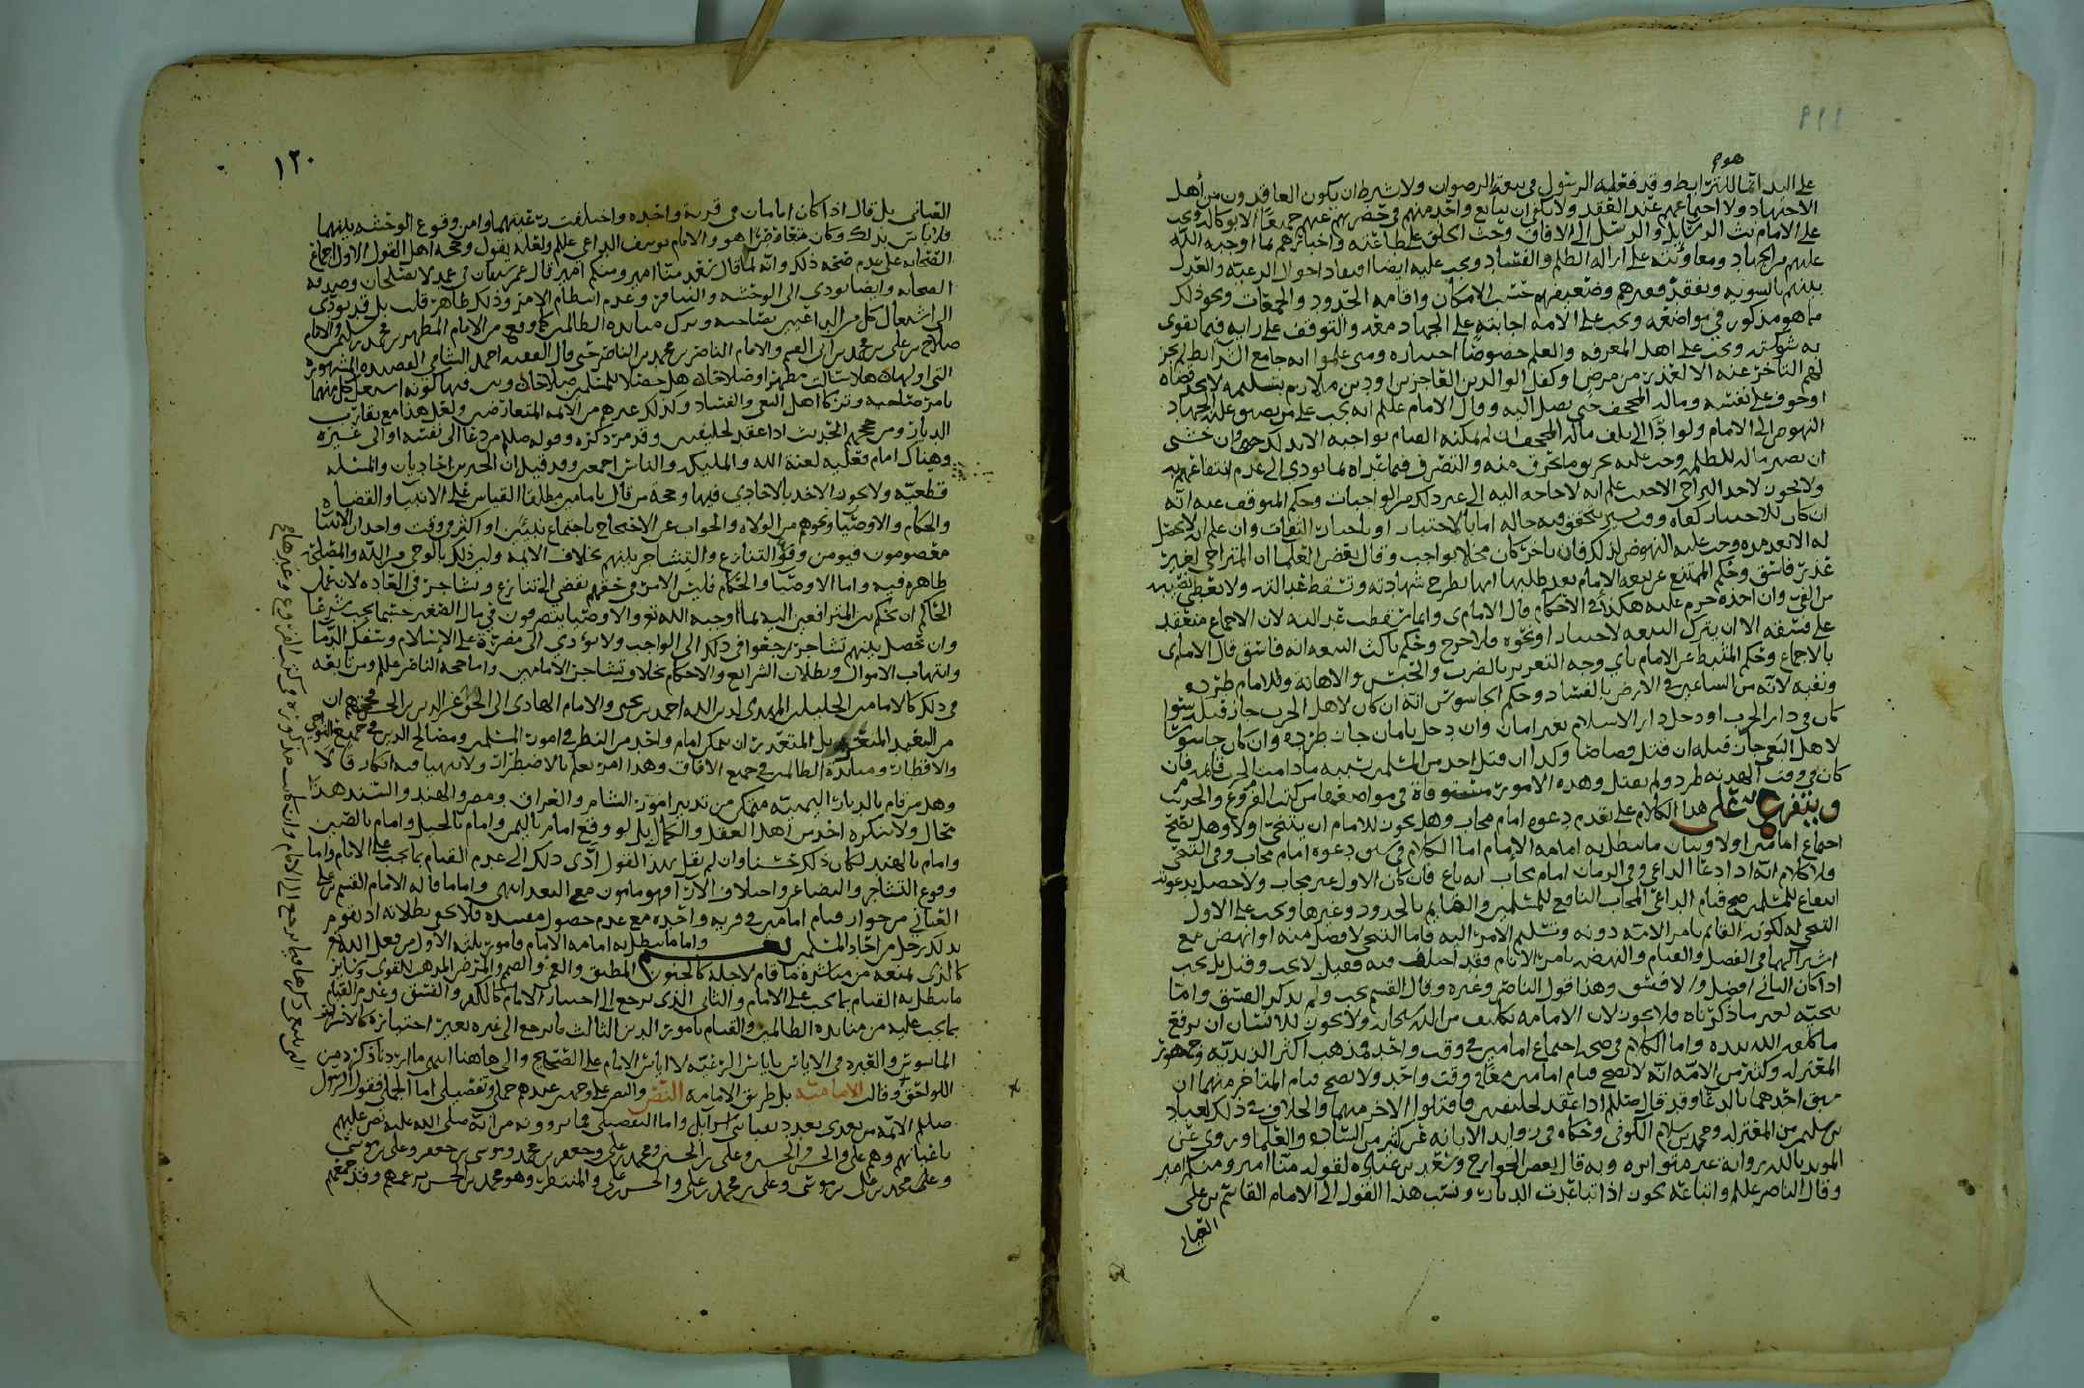 ١١٩
على اليد
وقد فعله الرسول في بيعة الرضوان ولا يشترط ان يكون العاقدون من أهل
الاجتهاد ولا اجتماعهم عند العقد ولا
على الامام بث الرسايل والرسل الى الافاق وحث الخلق على طاعته واخبارهم بما اوجبه الله
عليهم من الجهاد ومعاونته على ازالة الظلم والفساد ويجب عليه ايضا افتقاد احوال الرعية والعدل
بينهم بالسوية وتفقد فقيرهم وضعيفهم حسب الامكان واقامة الحدود والجمعات ونحو ذلك
ما هو مذكور في مواضعه ويجب على الامة اجابته على الجهاد معه والتوقف على رايه فيما يقوى
به شوكته ويجب على اهل المعرفة والعلم خصوصًا اختباره ومتى علموا انه جامع الشرايط لم يجز
لهم التأخر عنه الا لعذر من مرض او كفل الوالدين العاجزين او دين ملازم بتسليمه لا يجد قضاه
او خوف على نفسه وماله المجحف حتى يصل اليه وقال الامام علم انه يجب على من يضيق عليه الجهاد
النهوض الى الامام ولو ادّا الى تلف ماله المجحف
ولا يجوز لاحد التراخي الا حيث علم انه لا حاجة اليه الى غير ذلك من الواجبات وحكم المتوقف عنه انّه
ان كان للاختبار
له الا بعد مدة وجب عليه النهوض لذلك فان تاخر كان مخلا بواجب وقال بعض العلما ان المتراخي لغير
عذر فاسق وحكم الممتنع عن بيعة الامام بعد طلبها انها تطرح شهادته وتسقط عدالته ولا يعطى نصيبه
من الفي وان اخذه حرم عليه هكذا في الاحكام قال الامام ى وانما تسقط عدالته لان الاجماع منعقد
على فسقه الا ان يترك البيعة لاختبار او نحوه فلا حرج وحكم ناكث البيعة انه فاسق
بالاجماع وحكم المثبط عن الامام باي وجه التعزير بالضرب والحبس والاهانة وللامام طرده
ونفيه لانه من الساعين في الارض بالفساد وحكم الجاسوس انه ان كان لاهل الحرب جاز قتله سوا
كان في دار الحرب او دخل دار الاسلام بغير امان وان دخل بامان جاز طرده وان كان جاسوسًا
لاهل البغي جاز قتله ان قتل قصاصا وكذا ان قتل احد من المسلمين بسببه ما دامت الحرب قايمة فان
كان في وقت الهدنة طرد ولم يقتل وهذه الامور مستوفاة في مواضعها من كتب الفروع والحديث
ويتفرع على هذا الكلام على تقدم دعوة امام مجاب وهل يجوز للامام ان يتنحى اولا وهل يصح
اجتماع امامين اولا وبيان ما تبطل به امامة الإمام اما الكلام في سبق دعوة امام مجاب وفي التنحي
فلا كلام انه اذا دعا الداعي وفي الزمان امام مجاب انه باغ فان كان الاول غير مجاب ولا حصل بدعوته
انتفاع للمسلمين صح قيام الداعي المجاب النافع للمسلمين والقايم بالحدود وغيرها ويجب على الاول
التنحي له لكونه القايم بامر الامة دونه وتسليم الامر اليه فاما التنحي لافضل منه او انهض مع
اشتراكهما في الفضل والقيام والنهضة بامر الانام فقد اختلف فيه فقيل لا يجب وقيل بل يجب
اذا كان الثاني افضل والا فسق وهذا قول الناصر وغيره وقال القسم يجب ولم يذكر الفسق واما
تنحيه لغير ما ذكرناه فلا يجوز لان الامامة تكليف من الله سبحانه ولا يجوز للانسان ان يرفع
ما كلفه الله بيده واما الكلام في صحة اجتماع امامين في وقت واحد فمذهب اكثر الزيدية وجمهور
المعتزلة وكثير من الامة انه لا يصح قيام امامين معًا في وقت واحد ولا يصح قيام المتاخر منهما ان
سبق احدهما بالدعا وقد قال صللم اذا عقد لخليفتين فاقتلوا الاخر منهما والخلاف في ذلك لعباد
بن سليمن من المعتزلة ومحمد بن سلام الكوفي وحكاه في زوايد الابانة عن كثير من السادة والعلما وروى عن
المويد بالله رواية غير متواترة وبه قال بعض الخوارج وسعد بن عبادة لقوله منا امير ومنكم امير
وقال الناصر علم واتباعه يجوز اذا تباعدت الديار ونسب هذا القول الى الامام القاسم بن علي
العياني
١٢٠
العياني بل قال اذا كان امامان في قرية واحده واختلفت رغبتهما وامن وقوع الوحشه بينهما
فلا باس بذلك وكان معارضا هو والامام يوسف الداعي علم ولعله يقول وحجة اهل القول الاول اجماع
الصحابة على عدم صحة ذلك وانه لما قال سعد منا امير ومنكم امير قال عمر سيفان في غمد لا يصلحان وصدقه
الصحابة وايضا يودى الى الوحشه والتنافر وعدم انتظام الامر وذلك ظاهر قلت بل قد يودى
الى اشتغال كل من الداعيين بصاحبه وترك منابذة الظالمين كما وقع من الامام المطهر بن محمد بن سليمن والامام
صلاح بن علي بن محمد بن ابي القسم والامام الناصر بن محمد بن الناصر حتى قال الفقيه احمد الشامي القصيدة المشهورة
بامر صاحبه وتركا اهل البغي والفساد وكذلك غيرهم من الائمة المتعارضين ولعل هذا مع تقارب
الديار ومن حججهم الحديث اذا عقد لخليفتين وقد مر ذكره وقوله صللم من دعا الى نفسه او الى غيره
وهناك امام فعليه لعنة الله والمليكة والناس اجمعين وقد قيل ان الخبرين احاديان والمسئله
قطعيه ولا يجوز الاخذ بالاحادي فيها وحجة من قال بامامين مطلقا القياس على الانبيا والقضاه
والحكام والاوصيا ونحوهم من الولاة والجواب عن الاحتجاج باجتماع نبيئين او اكثر في وقت واحد ان الانبيا
معصومون فيومن وقوع التنازع والتشاجر بينهم بخلاف الائمة وليس ذلك بالوحي من الله والمصلحة
ظاهرة فيه واما الاوصيا والحكام فليس الامر في حقهم يفضي الى تنازع وتشاجر في العادة لان على
الحاكم ان يحكم بين المترافعين اليه بما اوجبه الله تع والاوصيا يتصرفون في مال الصغير حسبما يجب شرعًا
وان حصل بينهم تشاجر رجعوا في ذلك الى الواجب ولا يؤدي الى مضرة على الإسلام وسفك الدما
وانتهاب الاموال وبطلان الشرايع والاحكام بخلاف تشاجر الامامين واما حجة الناصر علم ومن تابعه
في ذلك كالامامين الجليلين المهدى لدين الله احمد بن يحيى والامام الهادى الى الحق عز الدين بن الحسن فحجتهم ان
من البعيد المتعسر بل المتعذر ان يتمكن امام واحد من النظر في امور المسلمين ومصالح الدين في جميع النواحي
والاقطار ومنابذة الظالمين في جميع الافاق وهذا امر يعلم بالاضطرار ولا يتهيا فيه انكار قالا
وهل من قام بالديار اليمنية متمكن من تدبير امور الشام والعراق ومصر والهند والسند هذا
محال ولا ينكره احد من اهل العقل والكمال بل لو وقع امام باليمن وامام بالجبل وامام بالصين
وامام بالهند لكان ذلك حسنا وان لم نقل بهذا القول أدّى ذلك الى عدم القيام بما يجب على الانام واما
وقوع التشاجر والتضاغن واختلاف الارا فهو مامون مع البعد انتهى واما ما قاله الامام القسم بن علي
العياني من جواز قيام امامين في قرية واحدة مع عدم حصول مفسدة فلا يخفى بطلانه اذ يقوم
بذلك رجل من احاد المسلمين
واما ما تبطل به امامة الإمام فامور ثلثة الاول من فعل الله تع
كالذى يمنعه من مباشرة ما قام لاجله كالجنون المطبق والعمى والصمم والمرض المذهب للقوى وساير
ما يبطل به القيام بما يجب على الامام والثاني الذى يرجع الى اختيار الامام كالكفر والفسق وعدم القيام
بما يجب عليه من منابذة الظالمين والقيام بامور الدين الثالث ما يرجع الى غيره بغير اختياره كالاسر
الماسور والعبره في الاياس باياس الرعيّه لا اياس الامام على الصحيح والى هاهنا انتهى ما اردنا ذكره من
اللواحق وقالت الامامية بل طريق الامامه النص والنص على وجهين عندهم جملي وتفصيلي اما الجملي فقول الرسول
صللم الائمة من بعدى بعدد نقباء بني اسرآيل واما التفصيلي فما يروونه من انه صلى الله عليه نص عليهم
باعيانهم وهم علي والحسن والحسين وعلي بن الحسين ومحمد بن علي وجعفر بن محمد وموسى بن جعفر وعلي بن موسى
وعلى محمد بن علي بن موسى وعلي بن محمد بن علي والحسن بن علي والمنتظر وهو محمد بن الحسن بن